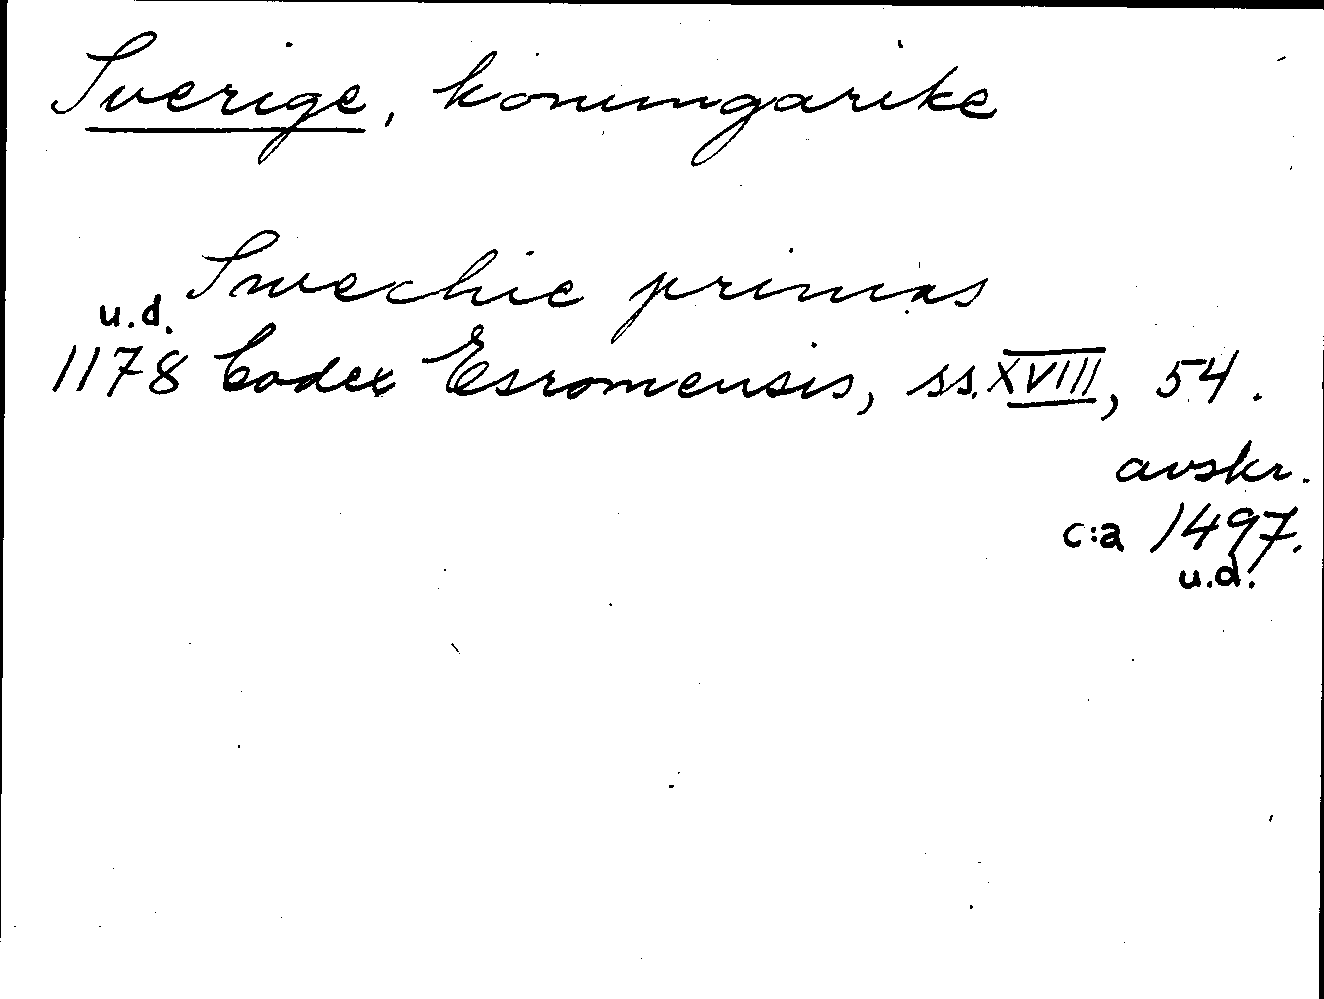 Sverige, konungarike
Swechie primas
u.d.
1178 Codex Esromensis, ss. XVIII, 54.
avskr.
c:a 1497.
u.d.